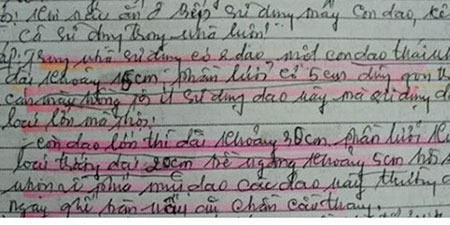 ỏ: Khi nấu ăn ở bếp sử dụng mấy con dao, kể
cả sử dụng trong nhà luôn!
áp: Trong nhà sử dụng có 2 dao một con dao thái nh
dài khoảng 15cm phần lưỡi có 5cm dùng gọn th
cán màu hồng ít sử dụng dao này mà sử dụng d
loại lớn mà thôi!
- con dao lớn thì dài khoảng 30cm phần lưỡi kh
loại thẳng dài 20cm bề ngang khoảng 5cm
nhọn vì phía mũi dao các dao này thường
ngay ghế bàn chân cầu thang.